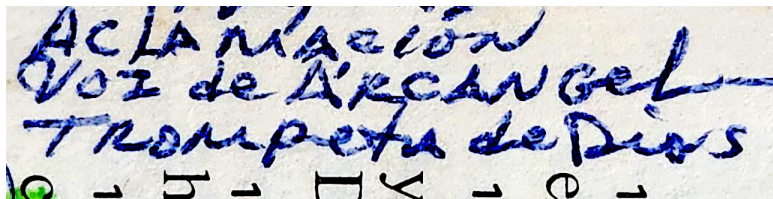 Aclamación
Voz de Arcangel
Trompeta de Dios